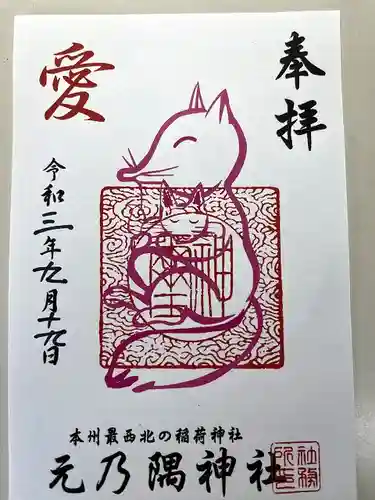 奉拝
愛
令和三年九月十九日
本州最西北の稲荷神社
元乃隅神社
社務所印